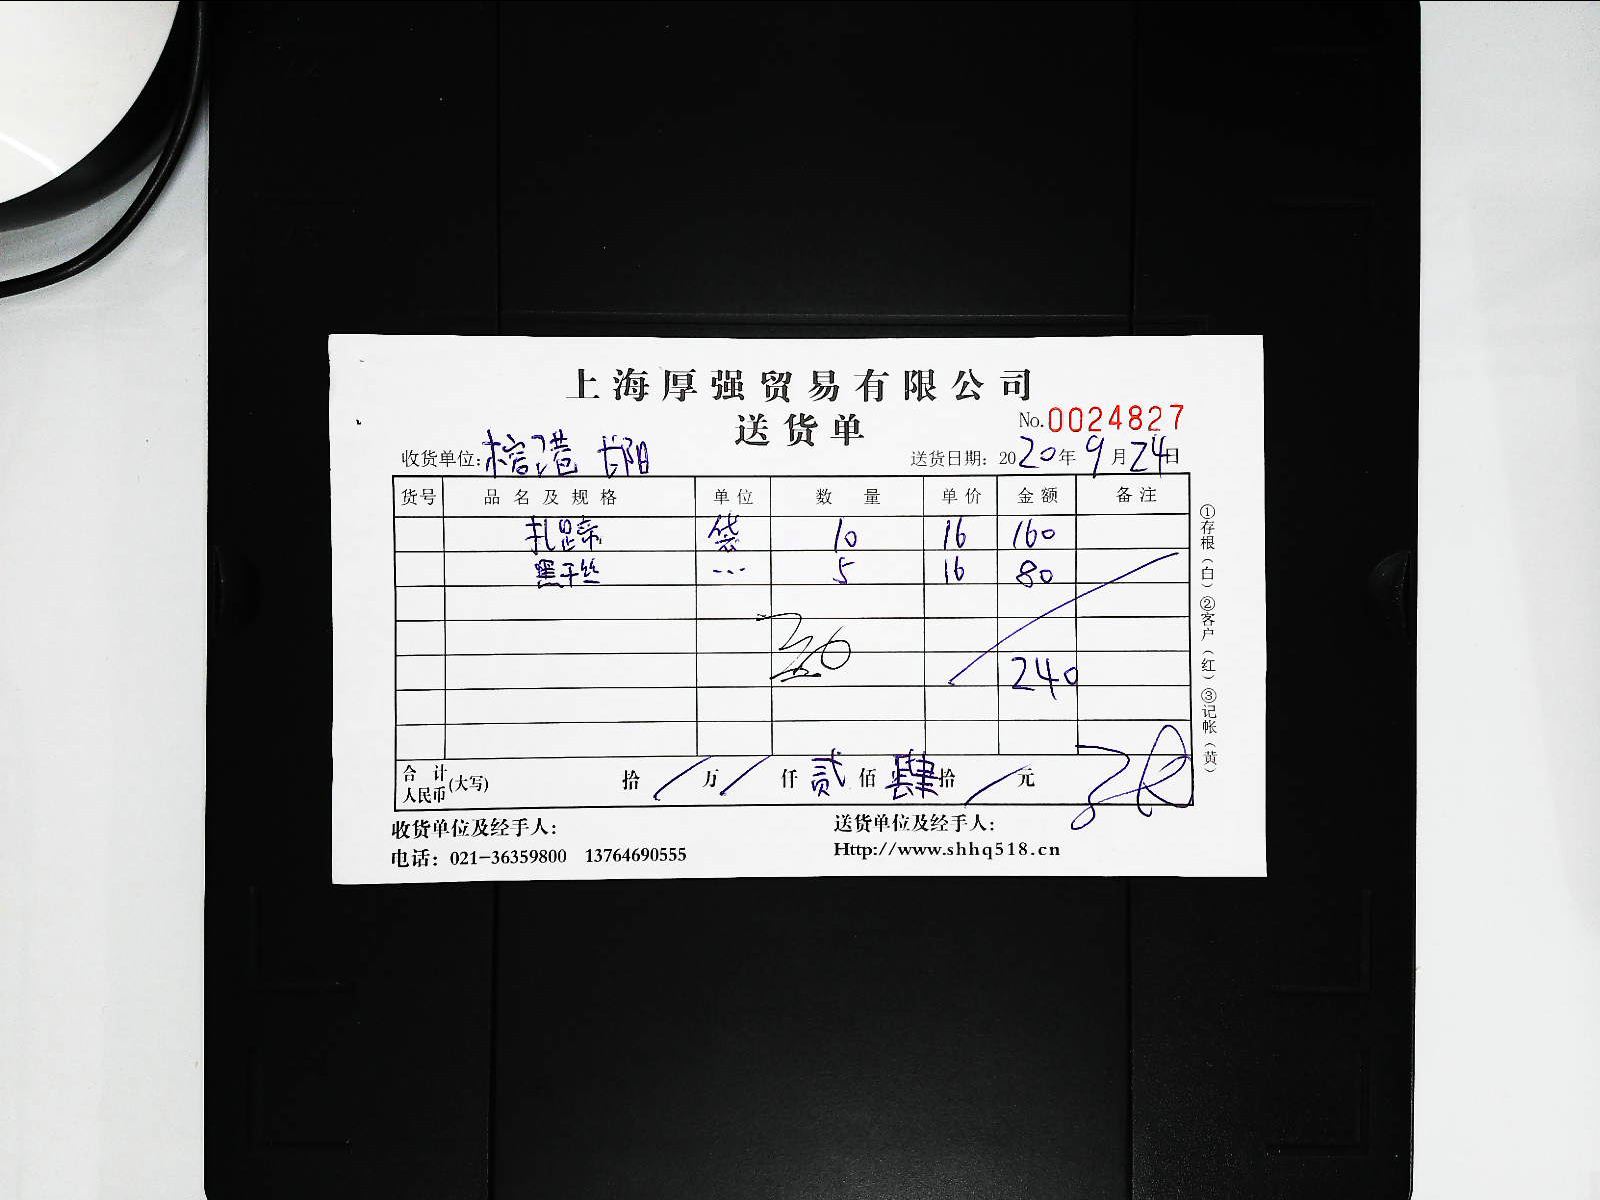 上海厚强贸易有限公司
送货单
No.0024827
收货单位: 送货日期: 2020年9月24日
货号 品名及规格 单位 数量 单价 金额 备注
袋 10 16 160
黑干丝 5 16 80
240
合计人民币(大写) 拾 / 万 / 仟 贰 佰 肆 拾 / 元
收货单位及经手人: 送货单位及经手人:
电话: 021-36359800 13764690555 Http://www.shhq518.cn
①存根(白)②客户(红)③记帐(黄)